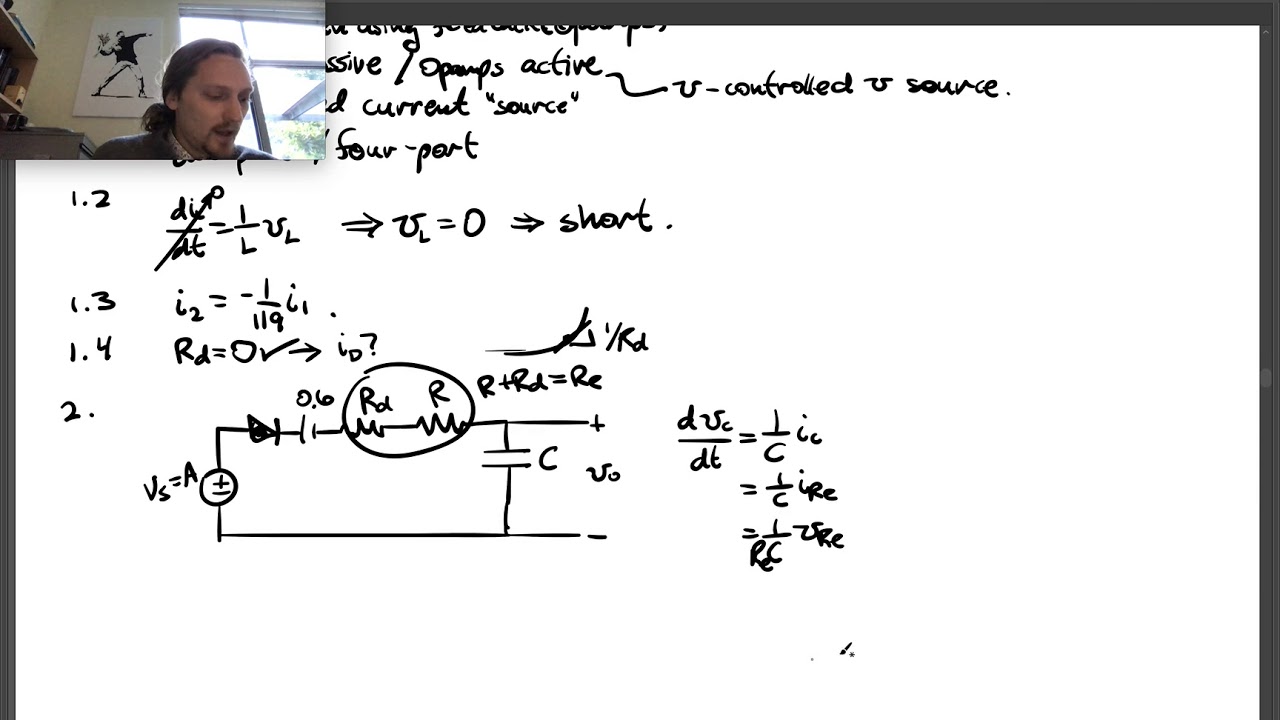 using feedback
ssive / Opamps active
v-controlled v source.
d current "source"
/ four-port
1.2 di_L/dt = 1/L v_L ⇒ v_L = 0 ⇒ short.
0
1.3 i₂ = -1/119 i₁.
1.4 R_d = 0 ✓→ i_D?
1/R_d
R + R_d = R_e
2.
0.6
R_d R
V_s = A
C
+
v_o
-
dv_c/dt = 1/C i_c
= 1/C i_Re
= 1/R_eC v_Re